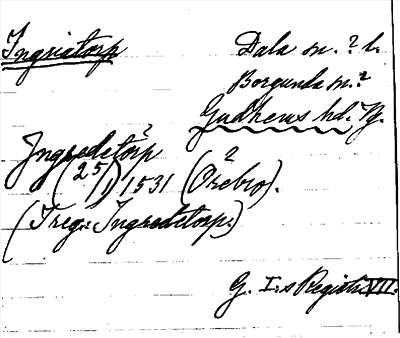 Ingriatorp
Dala sn. ? l.
Borgunda sn. ?
Gudhems hd. Vg.
Ingredetorp ?
(25/1) 1531 (Örebro) ?.
(I reg.: Ingredetorp.)
G. I:s Registr. VII.